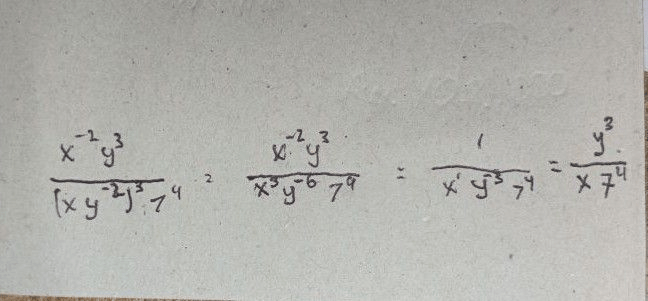 x⁻²y³ / (xy⁻²)³·7⁴ = x⁻²y³ / x³y⁻⁶ 7⁴ = 1 / x¹ y⁻³ 7⁴ = y³ / x 7⁴